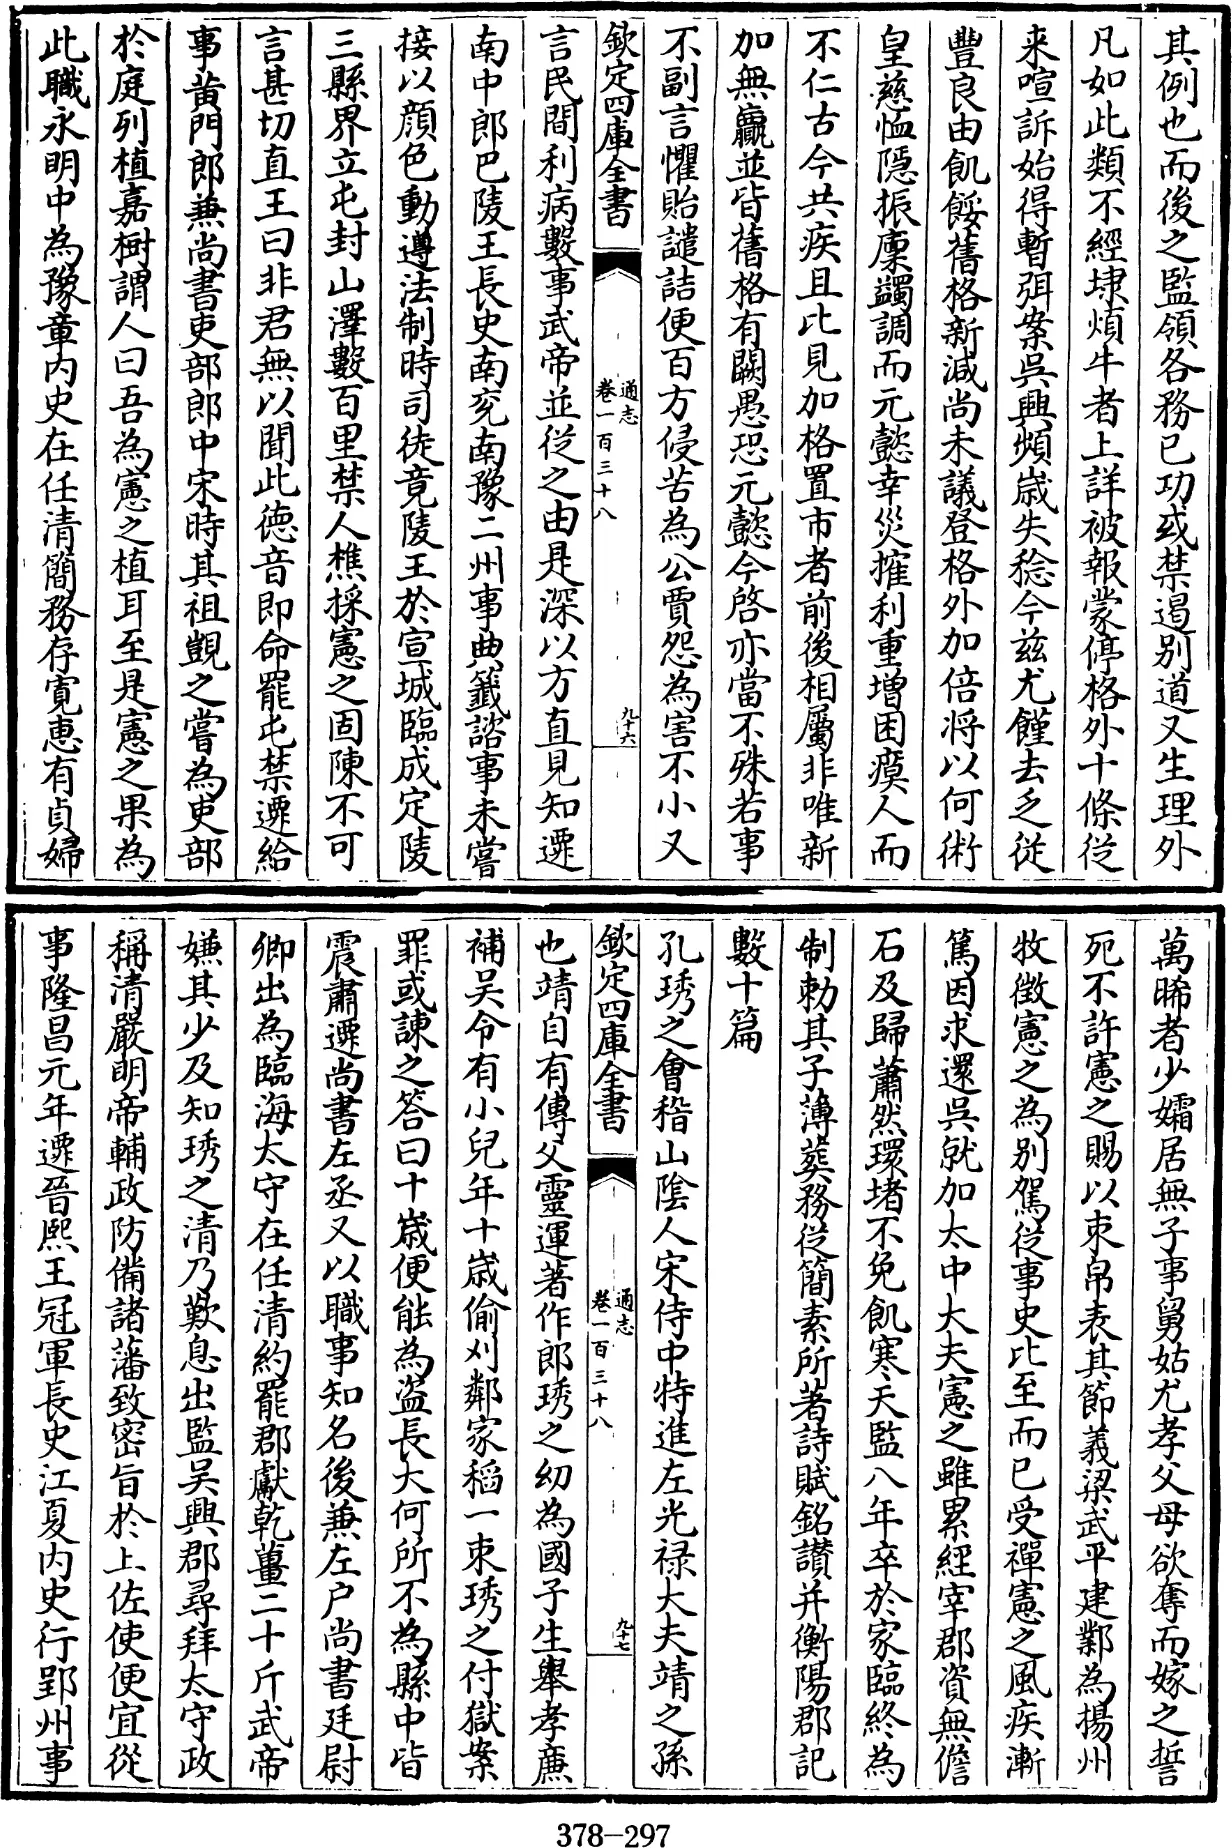 其例也而後之監領各務已功或禁遏别道又生理外
凡如此類不經埭煩牛者上詳被報蒙停格外十條從
来喧訴始得暫弭案呉興頻歳失稔今兹尤饉去乏從
豐良由飢餒舊格新減尚未議登格外加倍将以何術
皇慈恤隠振廩蠲調而元懿幸災㩁利重増困瘼人而
不仁古今共疾且比見加格置市者前後相屬非唯新
加無贏並皆舊格有闕愚恐元懿今啓亦當不殊若事
不副言懼貽譴詰便百方侵苦為公賈怨為害不小又
欽定四庫全書
通志
卷一百三十八
九十六
言民間利病數事武帝並從之由是深以方直見知遷
南中郎巴陵王長史南兖南豫二州事典籤諮事未嘗
接以顔色動遵法制時司徒竟陵王於宣城臨成定陵
三縣界立屯封山澤數百里禁人樵採憲之固陳不可
言甚切直王曰非君無以聞此徳音即命罷屯禁遷給
事黄門郎兼尚書吏部郎中宋時其祖覬之嘗為吏部
於庭列植嘉樹謂人曰吾為憲之植耳至是憲之果為
此職永明中為豫章内史在任清簡務存寛惠有貞婦
萬晞者少孀居無子事舅姑尤孝父母欲奪而嫁之誓
死不許憲之賜以束帛表其節義梁武平建鄴為揚州
牧徴憲之為别駕從事史比至而已受禪憲之風疾漸
篤因求還呉就加太中大夫憲之雖累經宰郡資無儋
石及歸蕭然環堵不免飢寒天監八年卒於家臨終為
制勅其子薄葬務從簡素所著詩賦銘讃并衡陽郡記
數十篇
孔琇之會稽山陰人宋侍中特進左光禄大夫靖之孫
欽定四庫全書
通志
卷一百三十八
九十七
也靖自有傳父靈運著作郎琇之幼為國子生舉孝廉
補吴令有小兒年十歳偷刈鄰家稻一束琇之付獄案
罪或諫之答曰十歳便能為盗長大何所不為縣中皆
震肅遷尚書左丞又以職事知名後兼左户尚書廷尉
卿出為臨海太守在任清約罷郡獻乾薑二十斤武帝
嫌其少及知琇之清乃歎息出監吴興郡尋拜太守政
稱清嚴明帝輔政防備諸藩致密旨於上佐使便宜從
事隆昌元年遷晉熙王冠軍長史江夏内史行郢州事
378-297